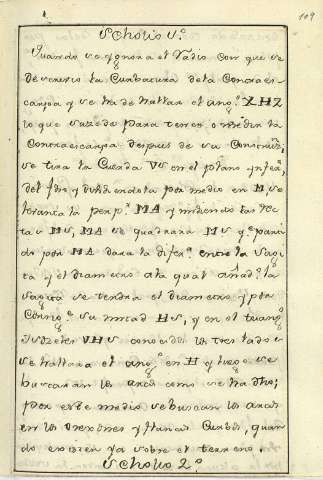 109
Scholio 1.º
Quando se ygnora el Radio con que se
descrivio la Curbatura de la Contraes-
carpa y se ha de hallar el ang.º XHZ
lo que suzede para tener o medir la
Contraescarpa despues de su Construz.ⁿ,
se tira la Cuerda VS en el plano ynfer.ʳ
del foso y dividiendola por medio en M se
lebanta la perp.ʳ MA y midiendo las rec-
tas MS, MA se quadrara MS y p.ª parti-
do por MA dara la difer.ª entre la Sagi-
ta y el diametro a la qual añad.ª la
sagita se tendra el diametro y por
Consig.ᵉ su mitad HS, y en el triang.º
Isozeles VHS conocidos los tres lados
se hallara el ang.º en H y luego se
buscaran los arcos como se ha dho;
por este medio se buscan los arcos
en los orexones y flancos Curbos, quan-
do existen ya sobre el terreno.
Scholio 2.º